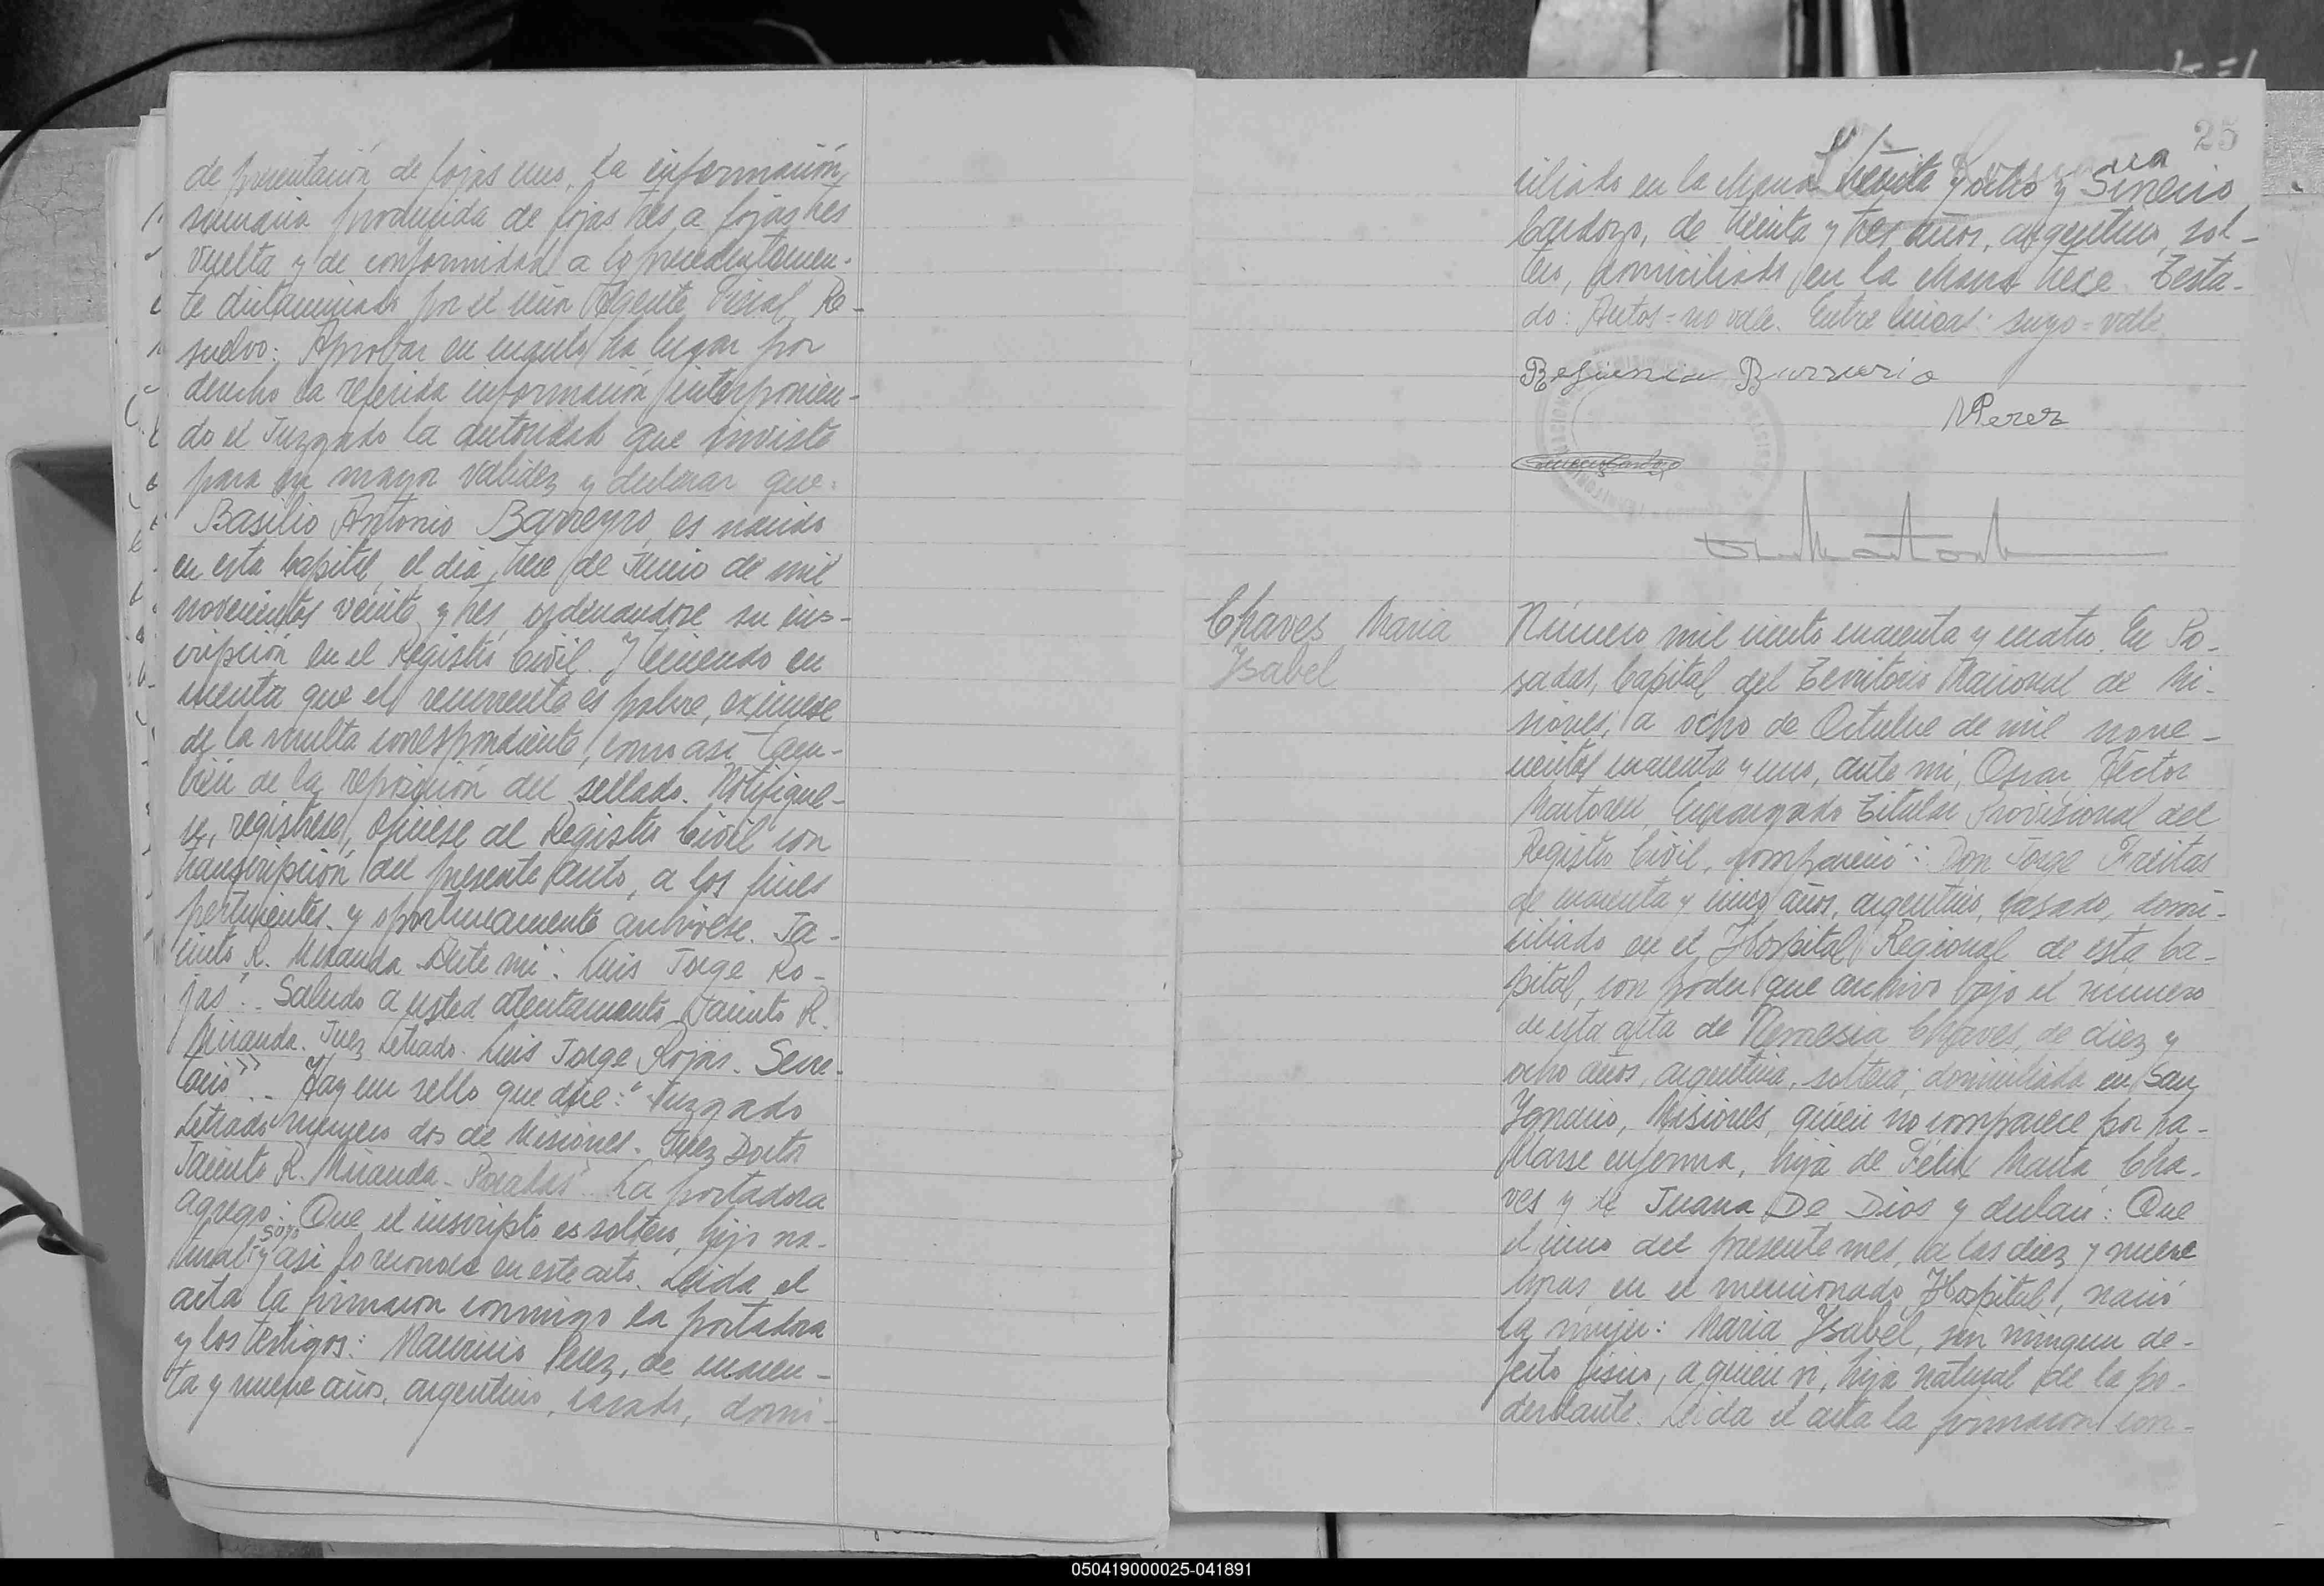 de presentación de fojas uno, la información
sumaria producida de fojas tres a fojas tres
vuelta y de conformidad a lo precedentemen-
te dictaminado por el señor Agente Fiscal, Re-
suelvo: Aprobar en cuanto ha lugar por
derecho la referida información interponien-
do el Juzgado la autoridad que inviste
para su mayor validez y declarar que:
Basilio Antonio Barreyro, es nacido
en esta Capital, el día trece de Junio de mil
novecientos veinte y tres, ordenandose su ins-
cripción en el Registro Civil. Y teniendo en
cuenta que el recurrente es pobre, exímese
de la multa correspondiente, como así tam-
bién de la reposición del sellado. Notifíque-
se, regístrese, ofíciese al Registro Civil con
transcripción del presente auto, a los fines
pertinentes y oportunamente archívese. Ja-
cinto R. Miranda. Ante mí: Luis Jorge Ro-
jas". Saludo a usted atentamente Jacinto R.
Miranda. Juez Letrado. Luis Jorge Rojas. Secre-
tario">>.. Hay un sello que dice: "Juzgado
Letrado número dos de Misiones. Juez Doctor
Jacinto R. Miranda - Posadas". La portadora
agregó: Que el inscripto es soltero, hijo na-
suyo
tural y así lo reconoce en este acto. Leída el
acta la firmaron conmigo la portadora
y los testigos: Mauricio Perez, de cuaren-
ta y nueve años, argentino, casado, domi-
25
ciliado en la chacra treinta y ocho y Sinecio
Cardozo, de treinta y tres años, argentino, sol-
tero, domiciliado en la chacra trece. Testa-
do: Autos = no vale. Entre líneas: suyo = vale
Perez
Chaves Maria
Ysabel
Número mil ciento cuarenta y cuatro. En Po-
sadas, Capital del Territorio Nacional de Mi-
siones, a ocho de Octubre de mil nove-
cientos cuarenta y uno, ante mí, Oscar Héctor
Martorell, Encargado Titular Provisional del
Registro Civil, compareció: Don Jorge Freitas
de cuarenta y cinco años, argentino, casado, domi-
ciliado en el Hospital Regional de esta Ca-
pital, con poder que archivo bajo el número
de esta acta de Nemesia Chaves, de diez y
ocho años, argentina, soltera, domiciliada en San
Ygnacio, Misiones, quien no comparece por ha-
llarse enferma, hija de Félix María Cha-
ves y de Juana De Dios y declaró: Que
el cinco del presente mes, a las diez y nueve
horas en el mencionado Hospital, nació
la mujer: Maria Ysabel, sin ningun de-
fecto físico, a quien vi, hija natural de la po-
derdante. Leída el acta la firmaron con-
050419000025-041891